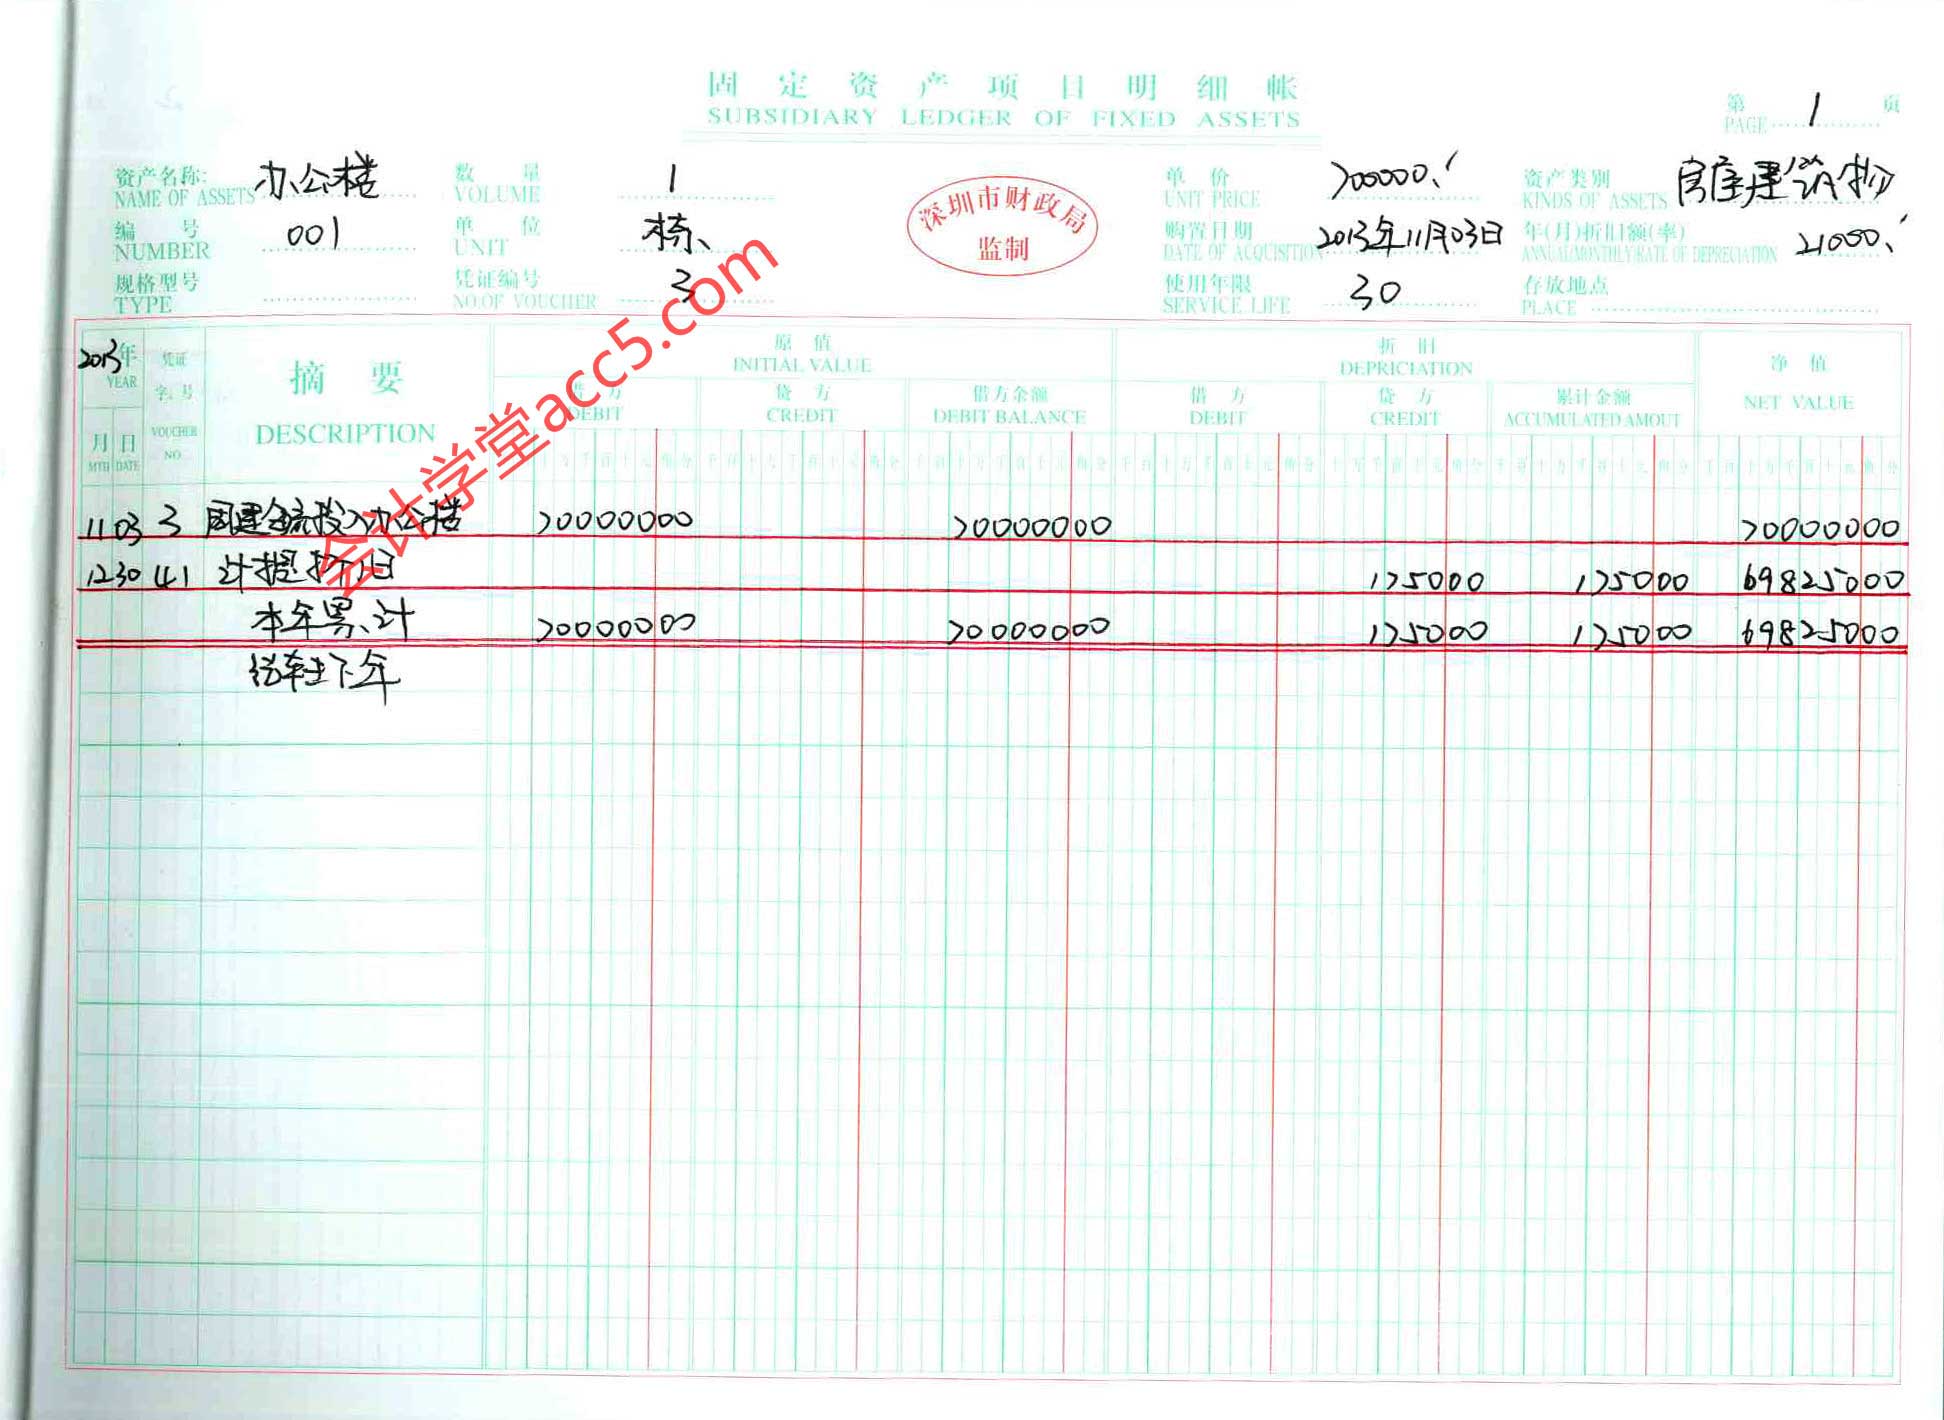 固定资产项目明细帐
SUBSIDIARY LEDGER OF FIXED ASSETS
第 1 页
PAGE
资产名称: 办公楼 数量 1 单价 700000.- 资产类别 房屋建筑物
NAME OF ASSETS VOLUME UNIT PRICE KINDS OF ASSETS
编号 001 单位 栋 购置日期 2013年11月03日 年(月)折旧额(率) 21000.-
NUMBER UNIT DATE OF ACQUISITION ANNUAL(MONTHLY)RATE OF DEPRECIATION
规格型号 凭证编号 3 使用年限 30 存放地点
TYPE NO.OF VOUCHER SERVICE LIFE PLACE
深圳市财政局
监制
2013年 凭证 摘要 原值 折旧 净值
YEAR 字、号 DESCRIPTION INITIAL VALUE DEPRICIATION NET VALUE
借方 贷方 借方余额 借方 贷方 累计金额
DEBIT CREDIT DEBIT BALANCE DEBIT CREDIT ACCUMULATED AMOUT
月 日 VOUCHER
MTH DATE NO
11 03 3 投入办公楼 70000000 70000000 70000000
12 30 41 计提折旧 175000 175000 69825000
本年累计 70000000 70000000 175000 175000 69825000
结转下年
会计学堂acc5.com